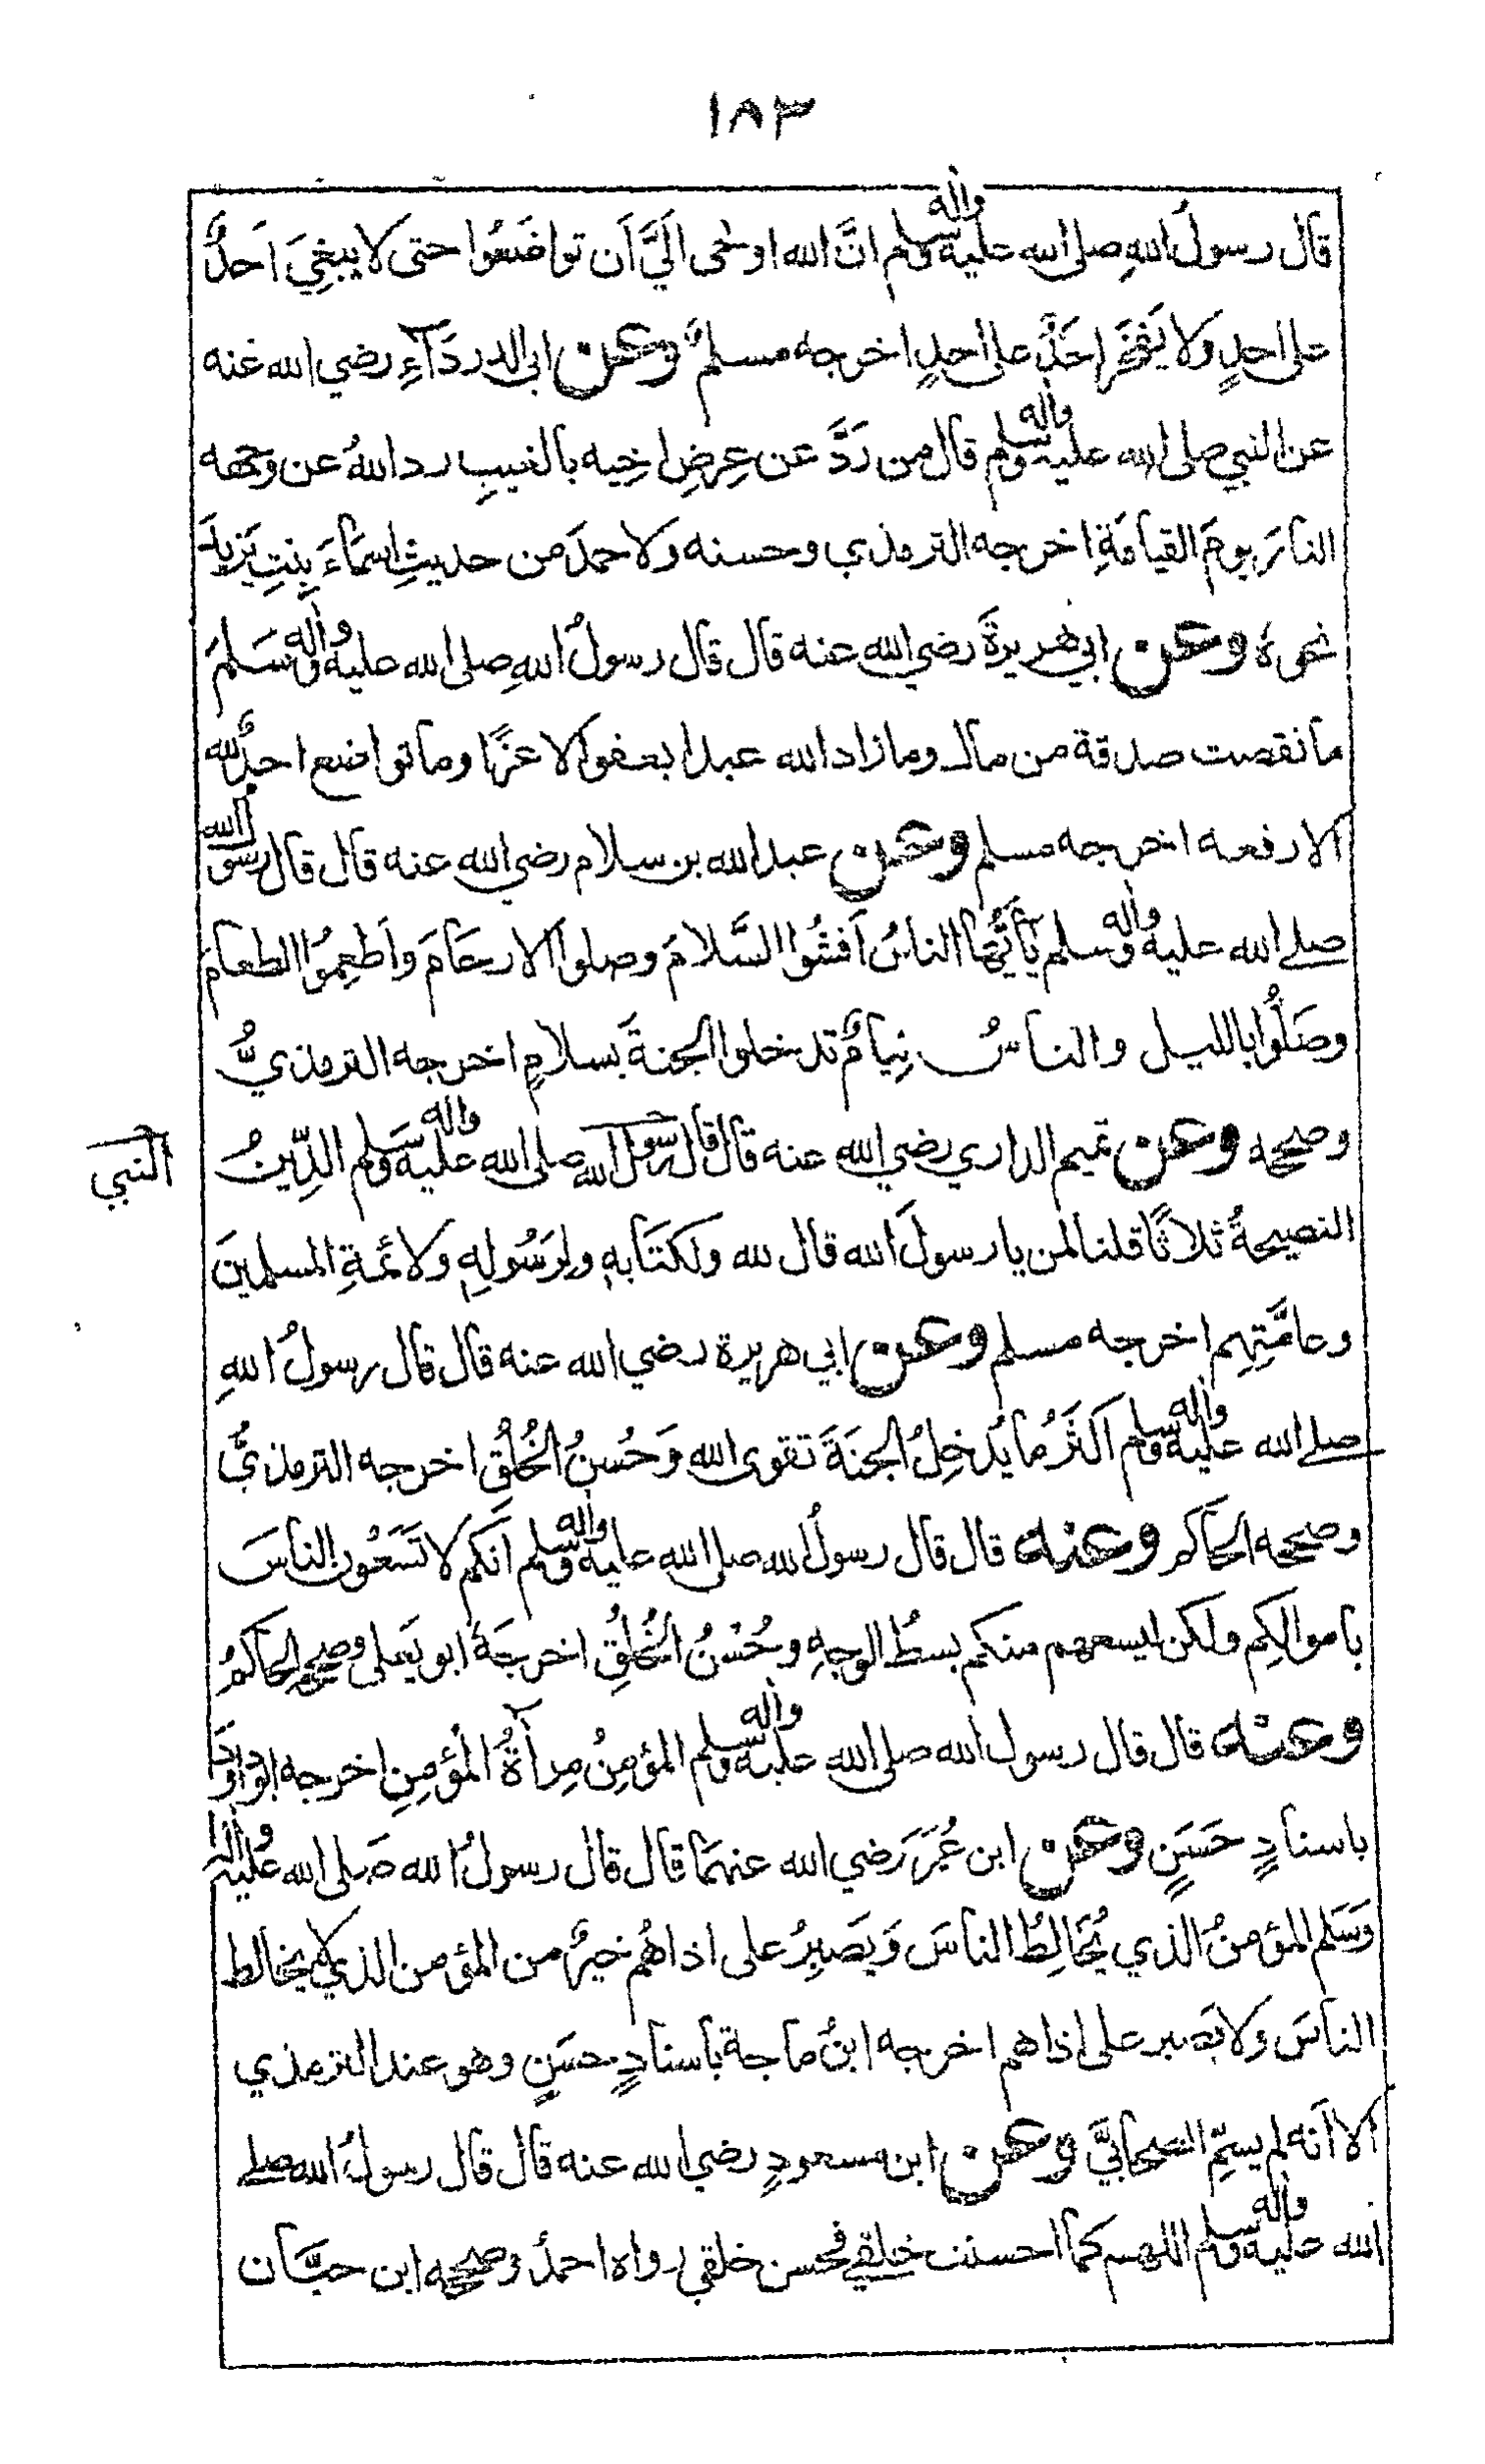 ١٨٣
قال رسولُ اللهِ صلى الله عليه وآله وسلم انَّ الله اوحى الَيَّ أَن تواضَعُوا حتى لا يبغِيَ اَحدٌ
على احدٍ ولا يَفخَرَ احَدٌ على احدٍ اخرجه مسلمٌ وعن ابي الدردَآءِ رضي الله عنه
عن النبي صلى الله عليه وآله وسلم قال من رَدَّ عن عِرضِ اخِيه بالغيبِ رد اللهُ عن وجهه
النارَ يومَ القيامَةِ اخرجه الترمذي وحسنه ولاحمدَ من حديثِ اسمَاءَ بِنتِ يَزِيدَ
نحوهُ وعن ابي هريرةَ رضي الله عنه قال قال رسولُ اللهِ صلى الله عليه وآله وسَلمَ
ما نقصت صدقة من مال وما زاد الله عبدا بعفو الا عزًّا وما تواضع احدٌ لله
الا رفعه اخرجه مسلم وعن عبد الله بن سلام رضي الله عنه قال قال رسول الله
صلى الله عليه وآله وسلم يٰأَيُّها الناسُ اَفشُوا السَّلامَ وصلوا الارحَامَ واَطعِمُوا الطعامَ
وصَلُّوا بالليل والناسُ نِيامٌ تدخلوا الجنةَ بسلامٍ اخرجه الترمذيُّ
وصححه وعن تميم الداري رضي الله عنه قال قال رسول الله صلى الله عليه وآله وسَلم الدِّينُ
النبي
النصيحةُ ثلاثًا قلنا لمن يا رسولَ الله قال لله ولكتَابهِ ولِرَسُولِهِ ولائمةِ المسلمينَ
وعامَّتِهِم اخرجه مسلم وعن ابي هريرة رضي الله عنه قال قال رسولُ اللهِ
صلى الله عليه وآله وسلم اكثَرُ ما يُدخِلُ الجنةَ تقوى الله وَحُسنُ الخُلُقِ اخرجه الترمذيُّ
وصححه الحاكم وعنه قال قال رسولُ لله صلى الله عليه وآله وسلم اَنكم لا تَسَعُون الناسَ
باموالِكم ولكن ليسعهم منكم بسطُ الوجهِ وحُسْنُ الخُلُقِ اخرجَهُ ابو يَعلى وصححه الحاكمُ
وعنه قال قال رسول الله صلى الله عليه وآله وسلم المؤمِنُ مِرآةُ المؤمِنِ اخرجه ابو داودَ
باسنادٍ حَسَنٍ وعن ابن عُمَرَ رَضي الله عنهمَا قال قال رسولُ الله صَلى الله عَليهِ وآله
وَسَلم المؤمنُ الذي يُخَالِطُ الناسَ وَيَصَبِرُ على اذاهُم خيرٌ من المؤمن الذي لا يخالط
الناسَ ولا يَصبر على اذاهم اخرجه ابنُ ماجة باسنادٍ حسَنٍ وهو عند الترمذي
الا اَنه لم يسمِّ الصحابيَّ وعن ابن مسعودٍ رضي الله عنه قال قال رسولُ الله صلى
الله عليه وآله وسلم اللهم كما احسنت خَلقي فحسن خلقي رواه احمدُ وصححه ابن حبَّان